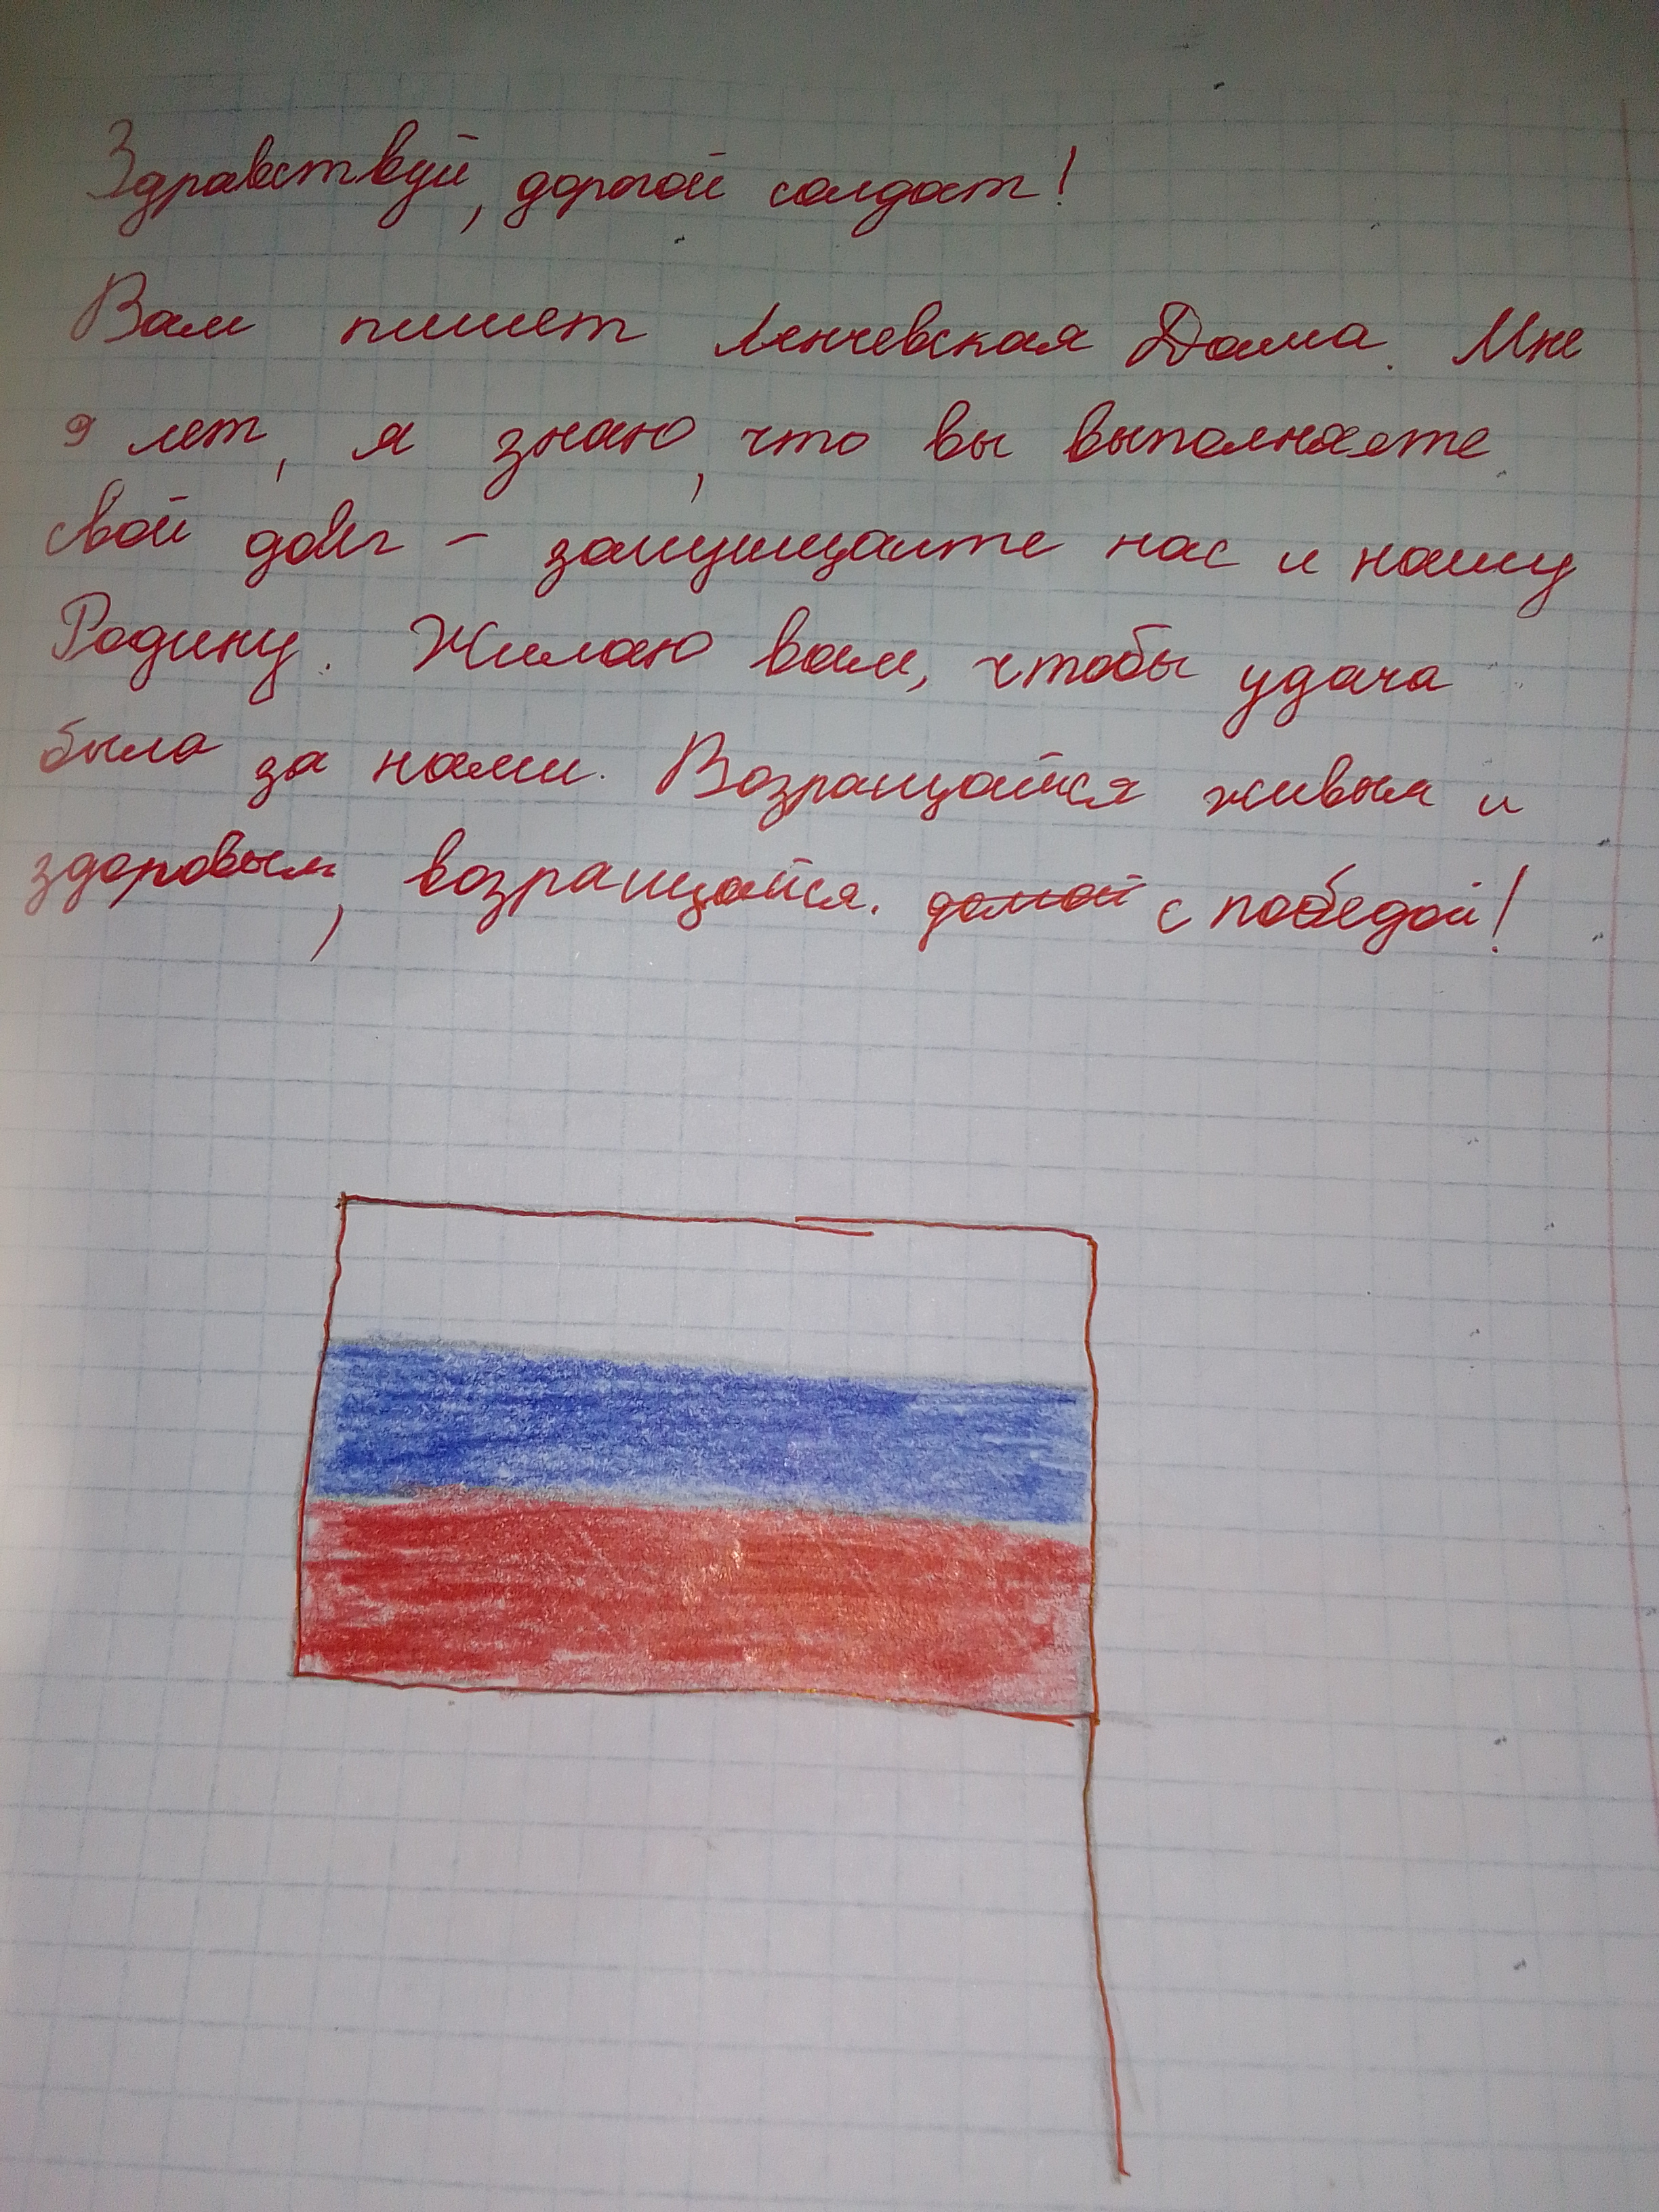 Здравствуй, дорогой солдат!
Вам пишет Ленчевская Даша. Мне
9 лет, я знаю, что вы выполняете
свой долг – защищаите нас и нашу
Родину. Жилаю вам, чтобы удача
была за нами. Возращайтся живым и
здоровым, возращайтся. домой с победой!